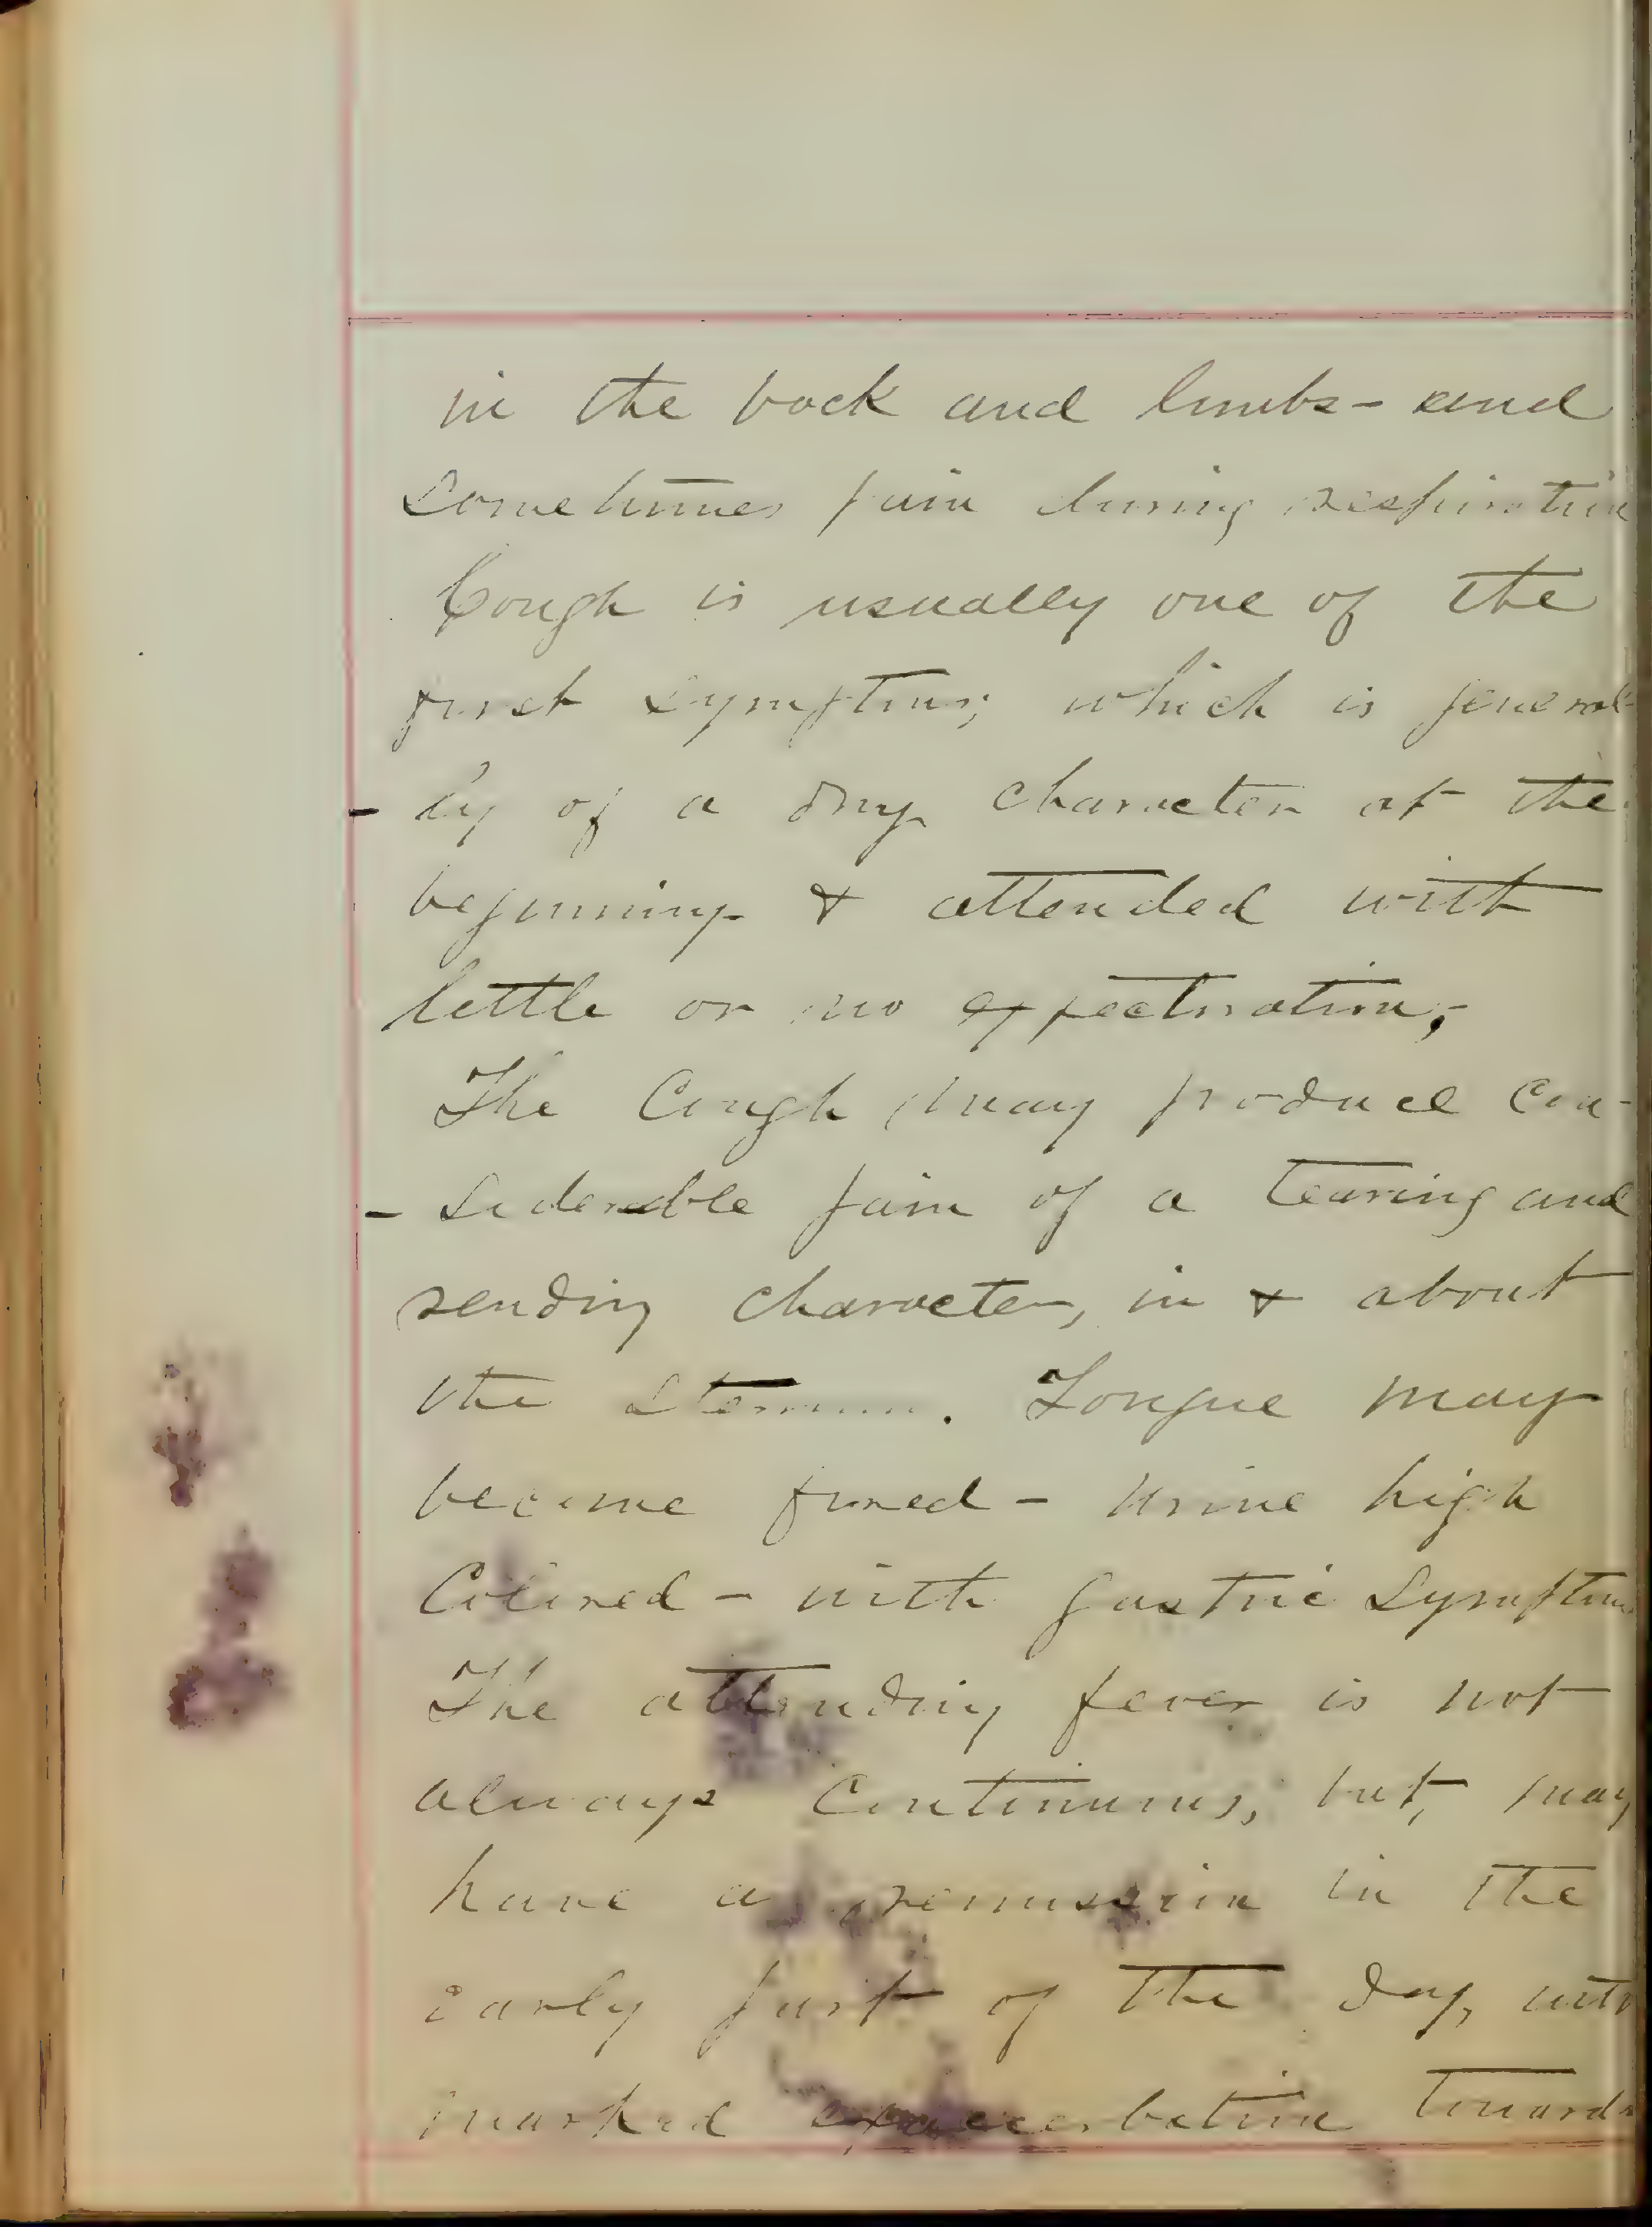 in the back and limbs - and
sometimes pain during respiration
Cough is usually one of the
first symptoms, which is general
- ly of a dry character at the
beginning & attended with
little or no expectoration,-
The Cough may produce con-
- siderable pain of a tearing and
rending character, in & about
the Sternum. Tongue may
become furred - urine high
Colored - with gastric symptoms
The attending fever is not
always Continuous, but, may
have a remission in the
early part of the day, with
marked exacerbation towards